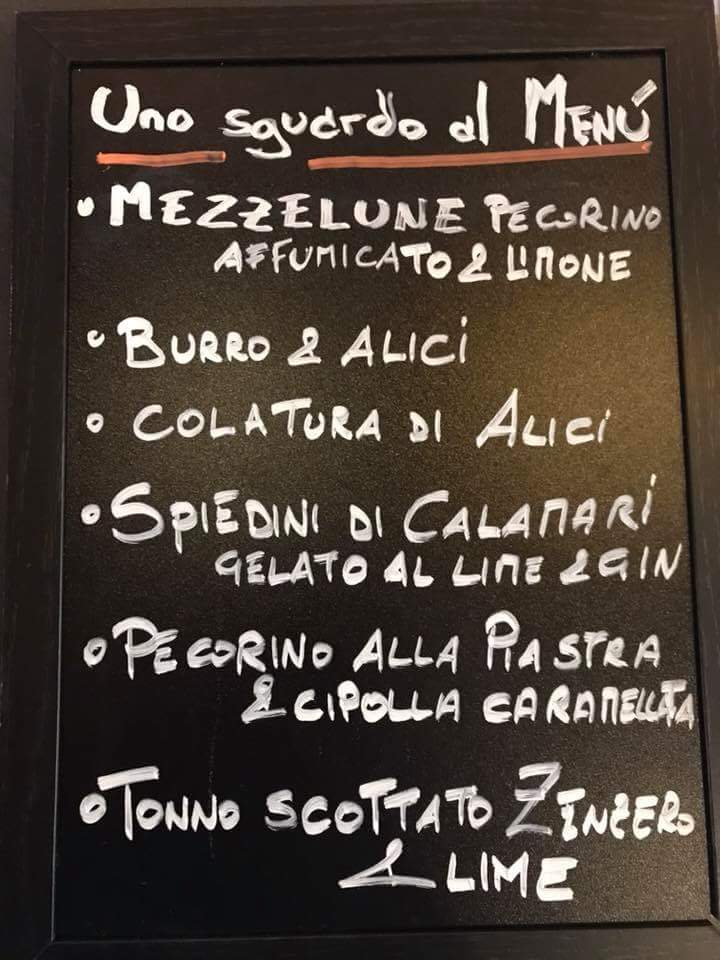 Uno sguardo al MENÚ
• MEZZELUNE PECORINO
AFFUMICATO & LIMONE
• BURRO & ALICI
• COLATURA DI ALICI
• SPIEDINI DI CALAMARI
GELATO AL LIME & GIN
• PECORINO ALLA PIASTRA
& CIPOLLA CARAMELLATA
• TONNO SCOTTATO ZINZERO
& LIME